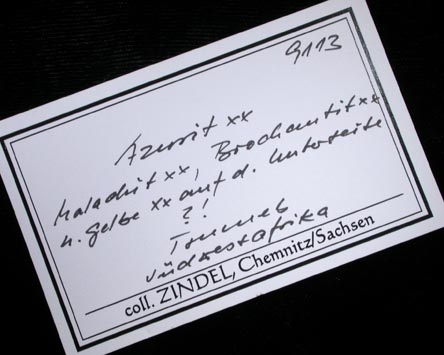 9113
Azurit xx
Malachit xx, Brochantit xx
u. gelbe xx auf d. Unterseite
?!
Tsumeb
Südwestafrika
coll. ZINDEL, Chemnitz/Sachsen